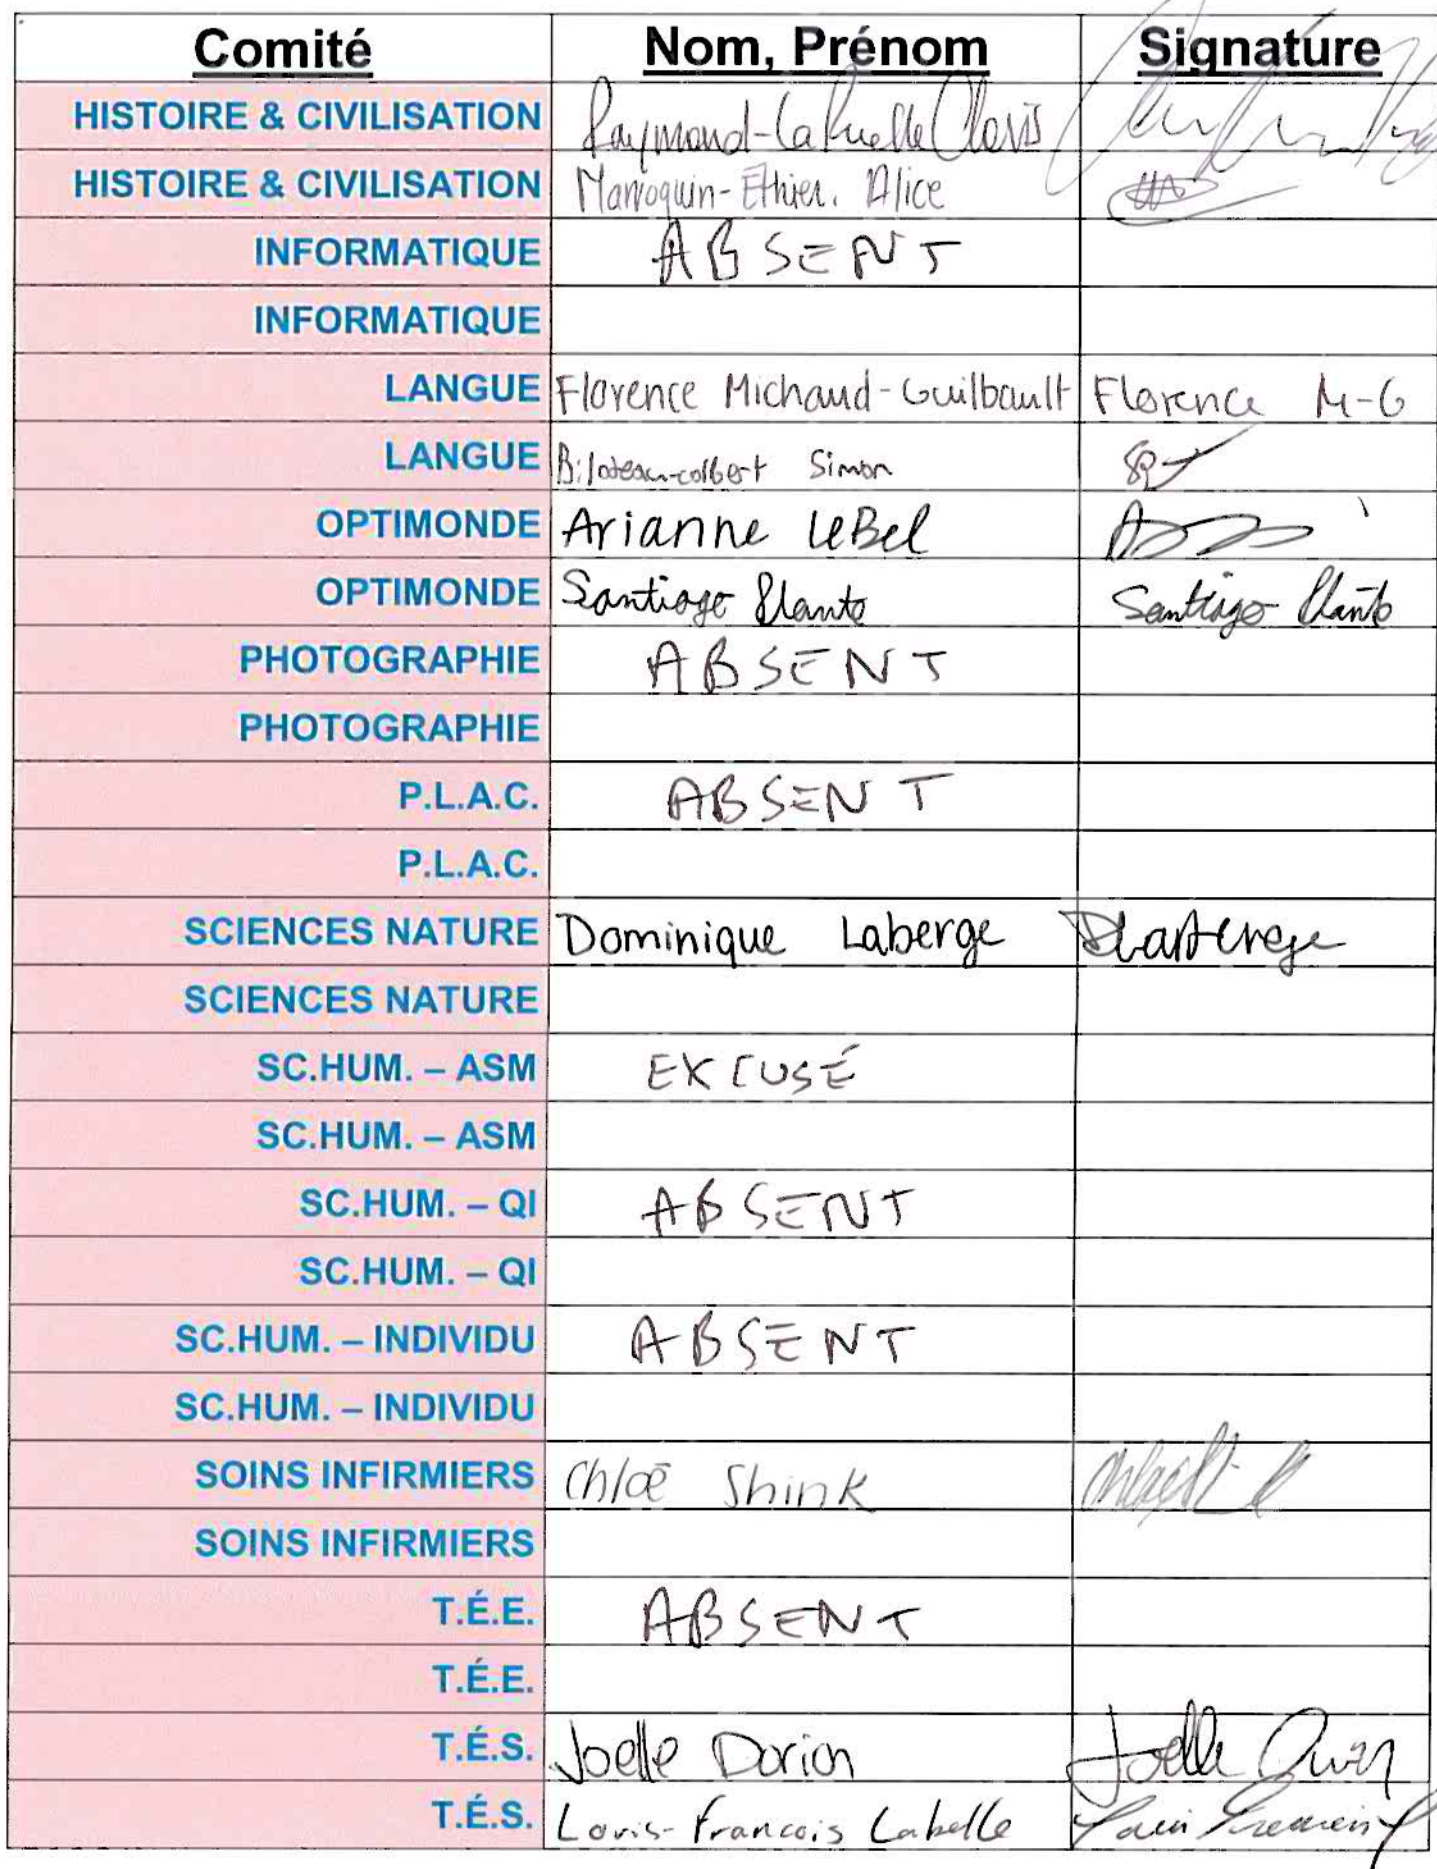 Comité Nom, Prénom Signature
HISTOIRE & CIVILISATION Raymond-LaRuelle Clovis
HISTOIRE & CIVILISATION Marroquin-Éthier. Alice
INFORMATIQUE ABSENT
INFORMATIQUE
LANGUE Florence Michaud-Guilbault Florence M-G
LANGUE Biloteau-colbert Simon
OPTIMONDE Arianne LeBel
OPTIMONDE Santiago Plante Santiago Plante
PHOTOGRAPHIE ABSENT
PHOTOGRAPHIE
P.L.A.C. ABSENT
P.L.A.C.
SCIENCES NATURE Dominique Laberge DLaberge
SCIENCES NATURE
SC.HUM. – ASM EXCUSÉ
SC.HUM. – ASM
SC.HUM. – QI ABSENT
SC.HUM. – QI
SC.HUM. – INDIVIDU ABSENT
SC.HUM. – INDIVIDU
SOINS INFIRMIERS Chloé Shink
SOINS INFIRMIERS
T.É.E. ABSENT
T.É.E.
T.É.S. Joelle Dorion Joelle Dorion
T.É.S. Louis-Francois Labelle